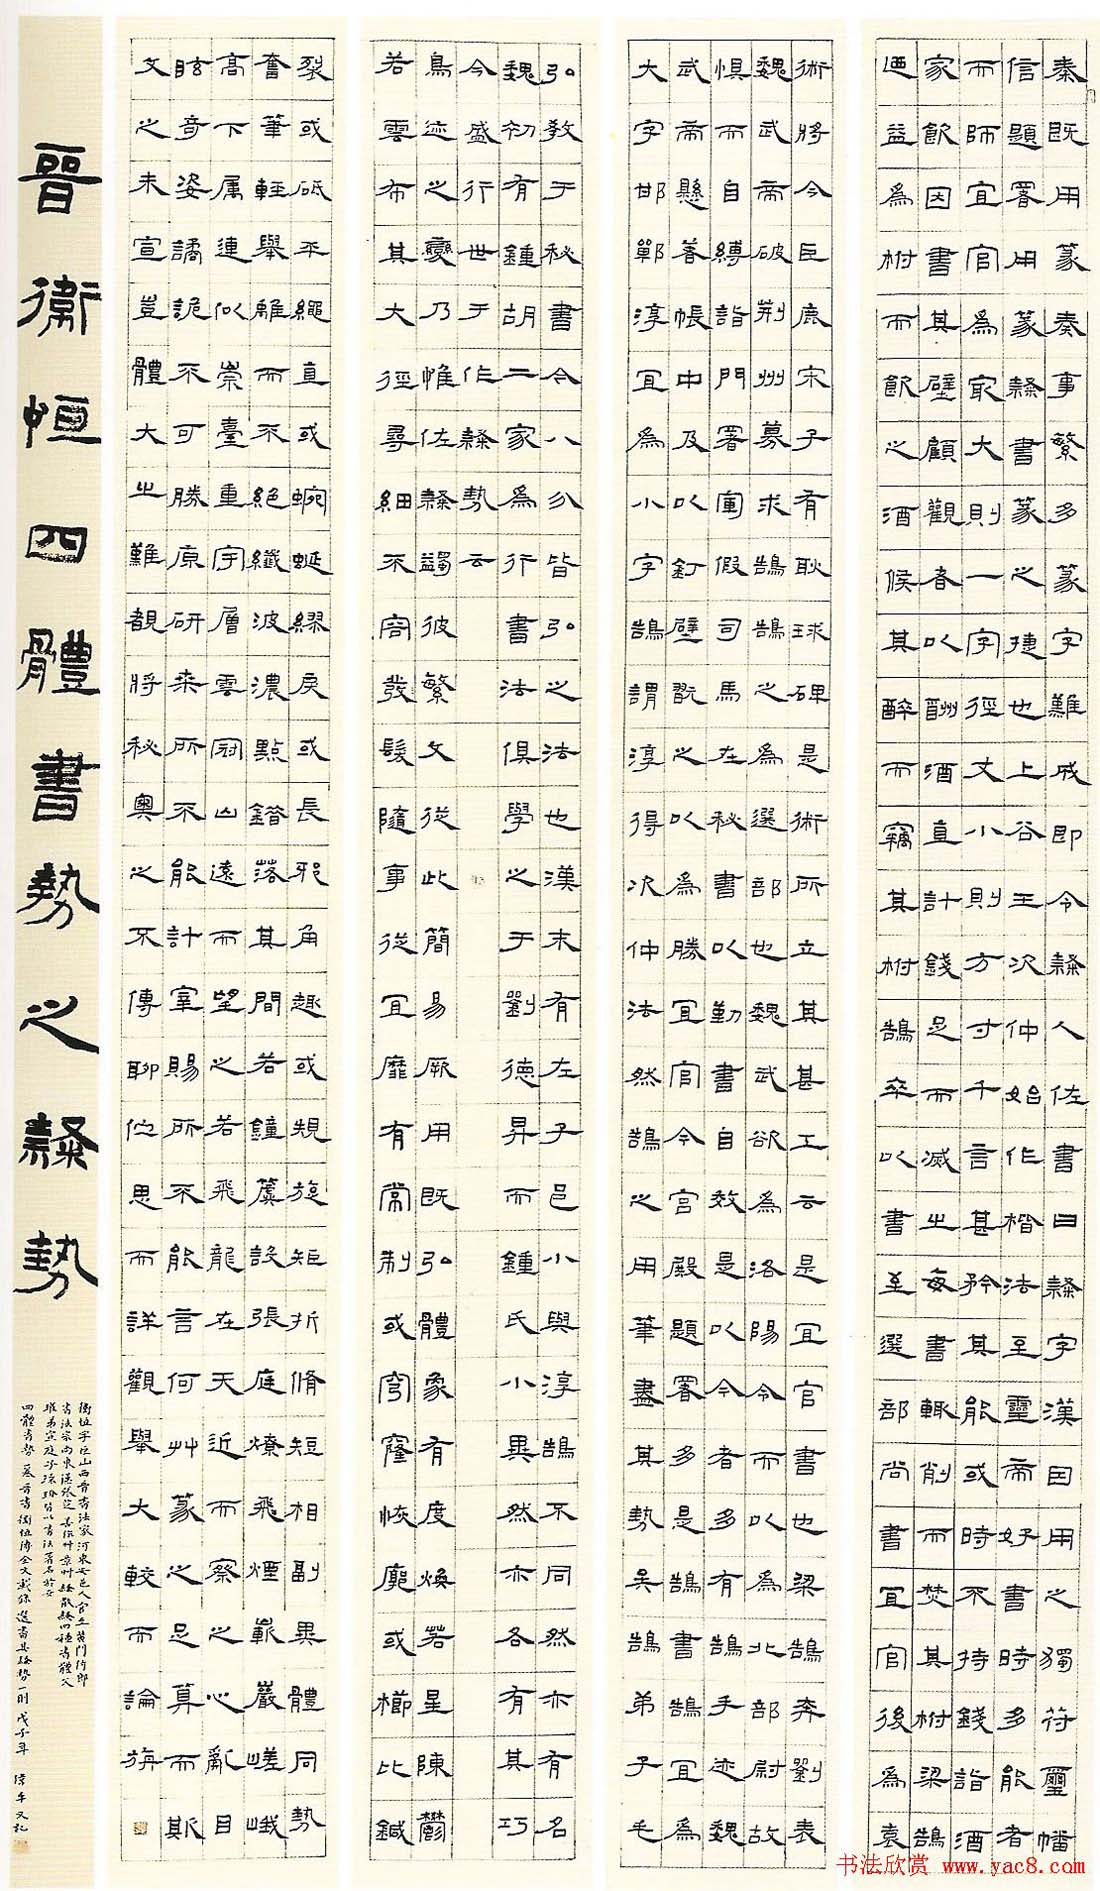 秦既用篆奏事繁多篆字難成即令隸人佐書曰隸字漢因用之獨符璽幡
信題署用篆隸書篆之捷也上谷王次仲始作楷法至靈帝好書時多能者
而師宜官為最大則一字徑丈小則方寸千言甚矜其能或時不持錢詣酒
家飲因書其壁顧觀者以酬酒直計錢足而滅之每書輒削而焚其柎梁鵠
迺益為柎而飲之酒候其醉而竊其柎鵠卒以書至選部尚書宜官後為袁
術將今巨鹿宋子有耿球碑是術所立其甚工云是宜官書也梁鵠奔劉表
魏武帝破荊州募求鵠鵠之為選部也魏武欲為洛陽令而以為北部尉故
懼而自縛詣門署軍假司馬在秘書以勤書自效是以今者多有鵠手迹魏
武帝懸著帳中及以釘壁玩之以為勝宜官今宮殿題署多是鵠書鵠宜為
大字邯鄲淳宜為小字鵠謂淳得次仲法然鵠之用筆盡其勢矣鵠弟子毛
弘教于秘書今八分皆弘之法也漢末有左子邑小與淳鵠不同然亦有名
魏初有鍾胡二家為行書法俱學之于劉德昇而鍾氏小異然亦各有其巧
今盛行世于作隸勢云
鳥迹之變乃惟佐隸蠲彼繁文從此簡易厥用既弘體象有度煥若星陳鬱
若雲布其大徑尋細不容發髮隨事從宜靡有常制或穹窿恢廓或櫛比鍼
裂或砥平繩直或蜿蜒繆戾或長邪角趣或規旋矩折脩短相副異體同勢
奮筆輕舉離而不絕纖波濃點錯落其間若鐘簴設張庭燎飛煙嶄巖嵯峨
高下属連似崇臺重宇層雲冠山遠而望之若飛龍在天近而察之心亂目
眩奇姿譎詭不可勝原研桒所不能計宰賜所不能言何艸篆之足算而斯
文之未宣豈體大之難覩將秘奧之不傳聊佇思而詳觀舉大較而論旃
晉衛恒四體書勢之隸勢
衛恒字巨山西晉書法家河東安邑人官至黃門侍郎
書法宗尚東漢張芝善作艸章艸隸散隸四種書體父
瓘弟宣庭子璪玠皆以書法著名於世
四體書勢 晉書衛恒傳全文載錄選書其隸勢一則戊子年 又記
书法欣赏 www.yac8.com